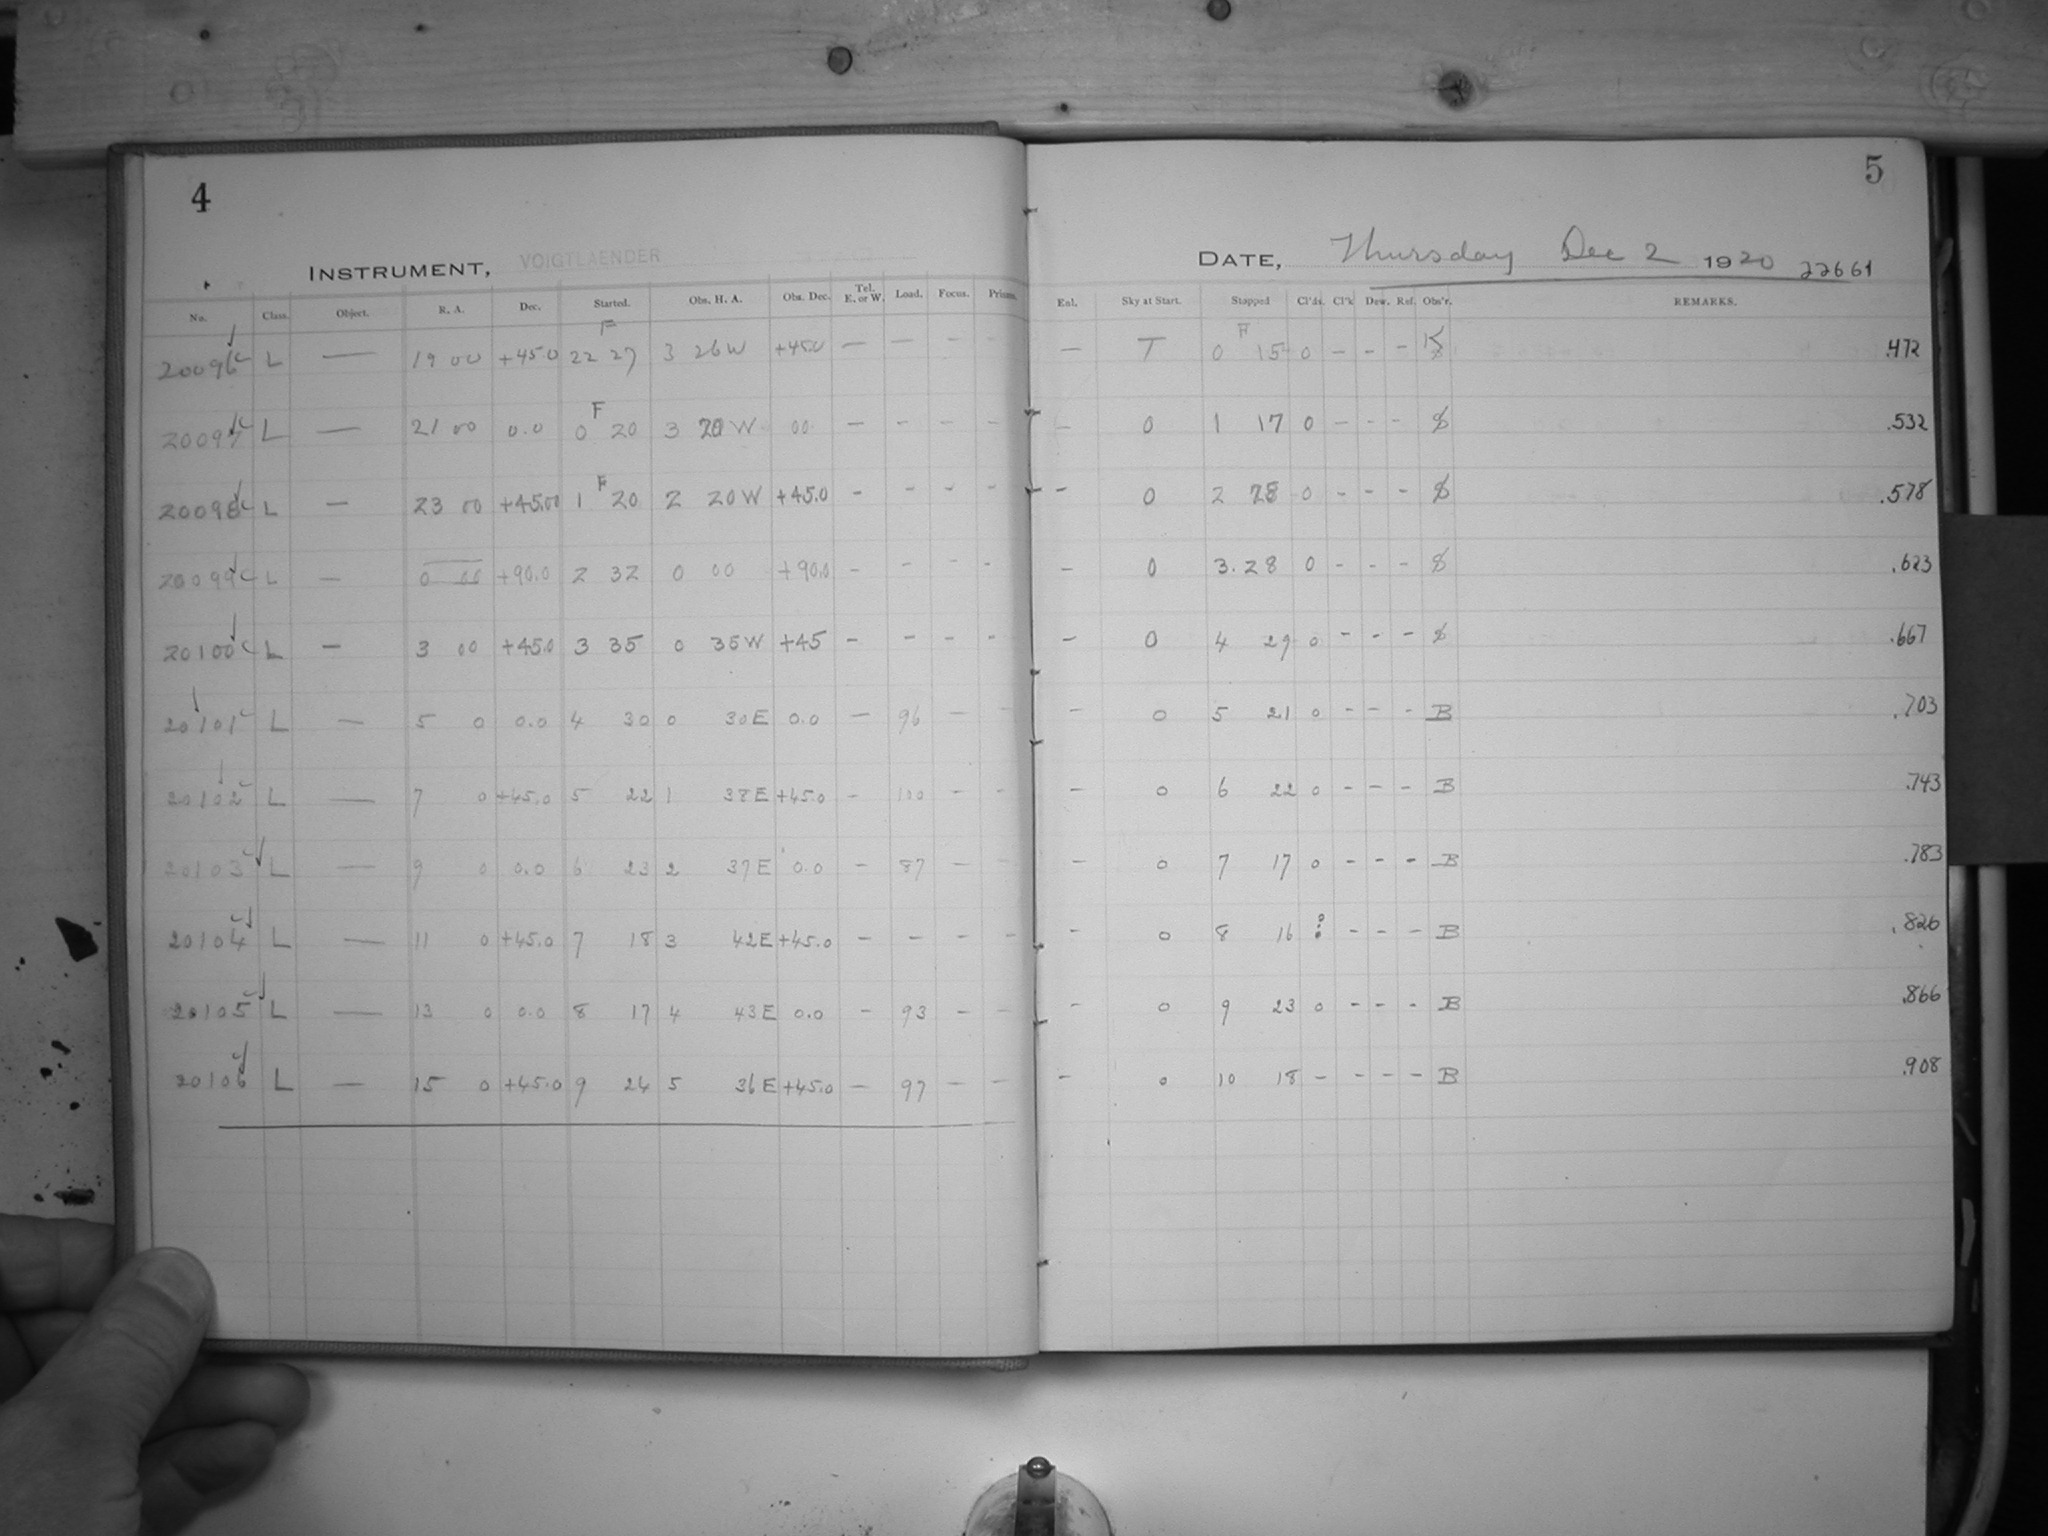 4
INSTRUMENT, VOIGTLAENDER
No. Class. Object. R. A. Dec. Started. Obs. H. A. Obs. Dec. Tel. E. or W. Load. Focus. Prisms.
20096 L — 19 00 +45.0 22 27 F 3 26 W +45.0 — — — -
20097 L — 21 00 0.0 0 20 F 3 20 W 00 — - - -
20098 L — 23 00 +45.00 1 20 F 2 20 W +45.0 - - - -
20099 L — 0 00 +90.0 2 32 0 00 +90.0 - - - -
20100 L — 3 00 +45.0 3 35 0 35 W +45 - - - -
20101 L — 5 0 0.0 4 30 0 30 E 0.0 — 96 — -
20102 L — 7 0 +45.0 5 22 1 38 E +45.0 - 100 - -
20103 L — 9 0 0.0 6 23 2 37 E 0.0 - 87 — -
20104 L — 11 0 +45.0 7 18 3 42 E +45.0 - - - -
20105 L — 13 0 0.0 8 17 4 43 E 0.0 - 93 - -
20106 L — 15 0 +45.0 9 24 5 36 E +45.0 — 97 — -
5
DATE, Thursday Dec 2 1920 22661
Enl. Sky at Start. Stopped Cl'ds. Cl'k Dew. Ref. Obs'r. REMARKS.
— T 0 15 F 0 - - - .472
- 0 1 17 0 - - - .532
- 0 2 28 0 - - - .578
- 0 3.28 0 - - - .623
- 0 4 29 0 - - - .667
- 0 5 21 0 - - - B .703
- 0 6 22 0 - - - B .743
- 0 7 17 0 - - - B .783
- 0 8 16 - - - B .826
- 0 9 23 0 - - - B .866
- 0 10 18 - - - - B .908